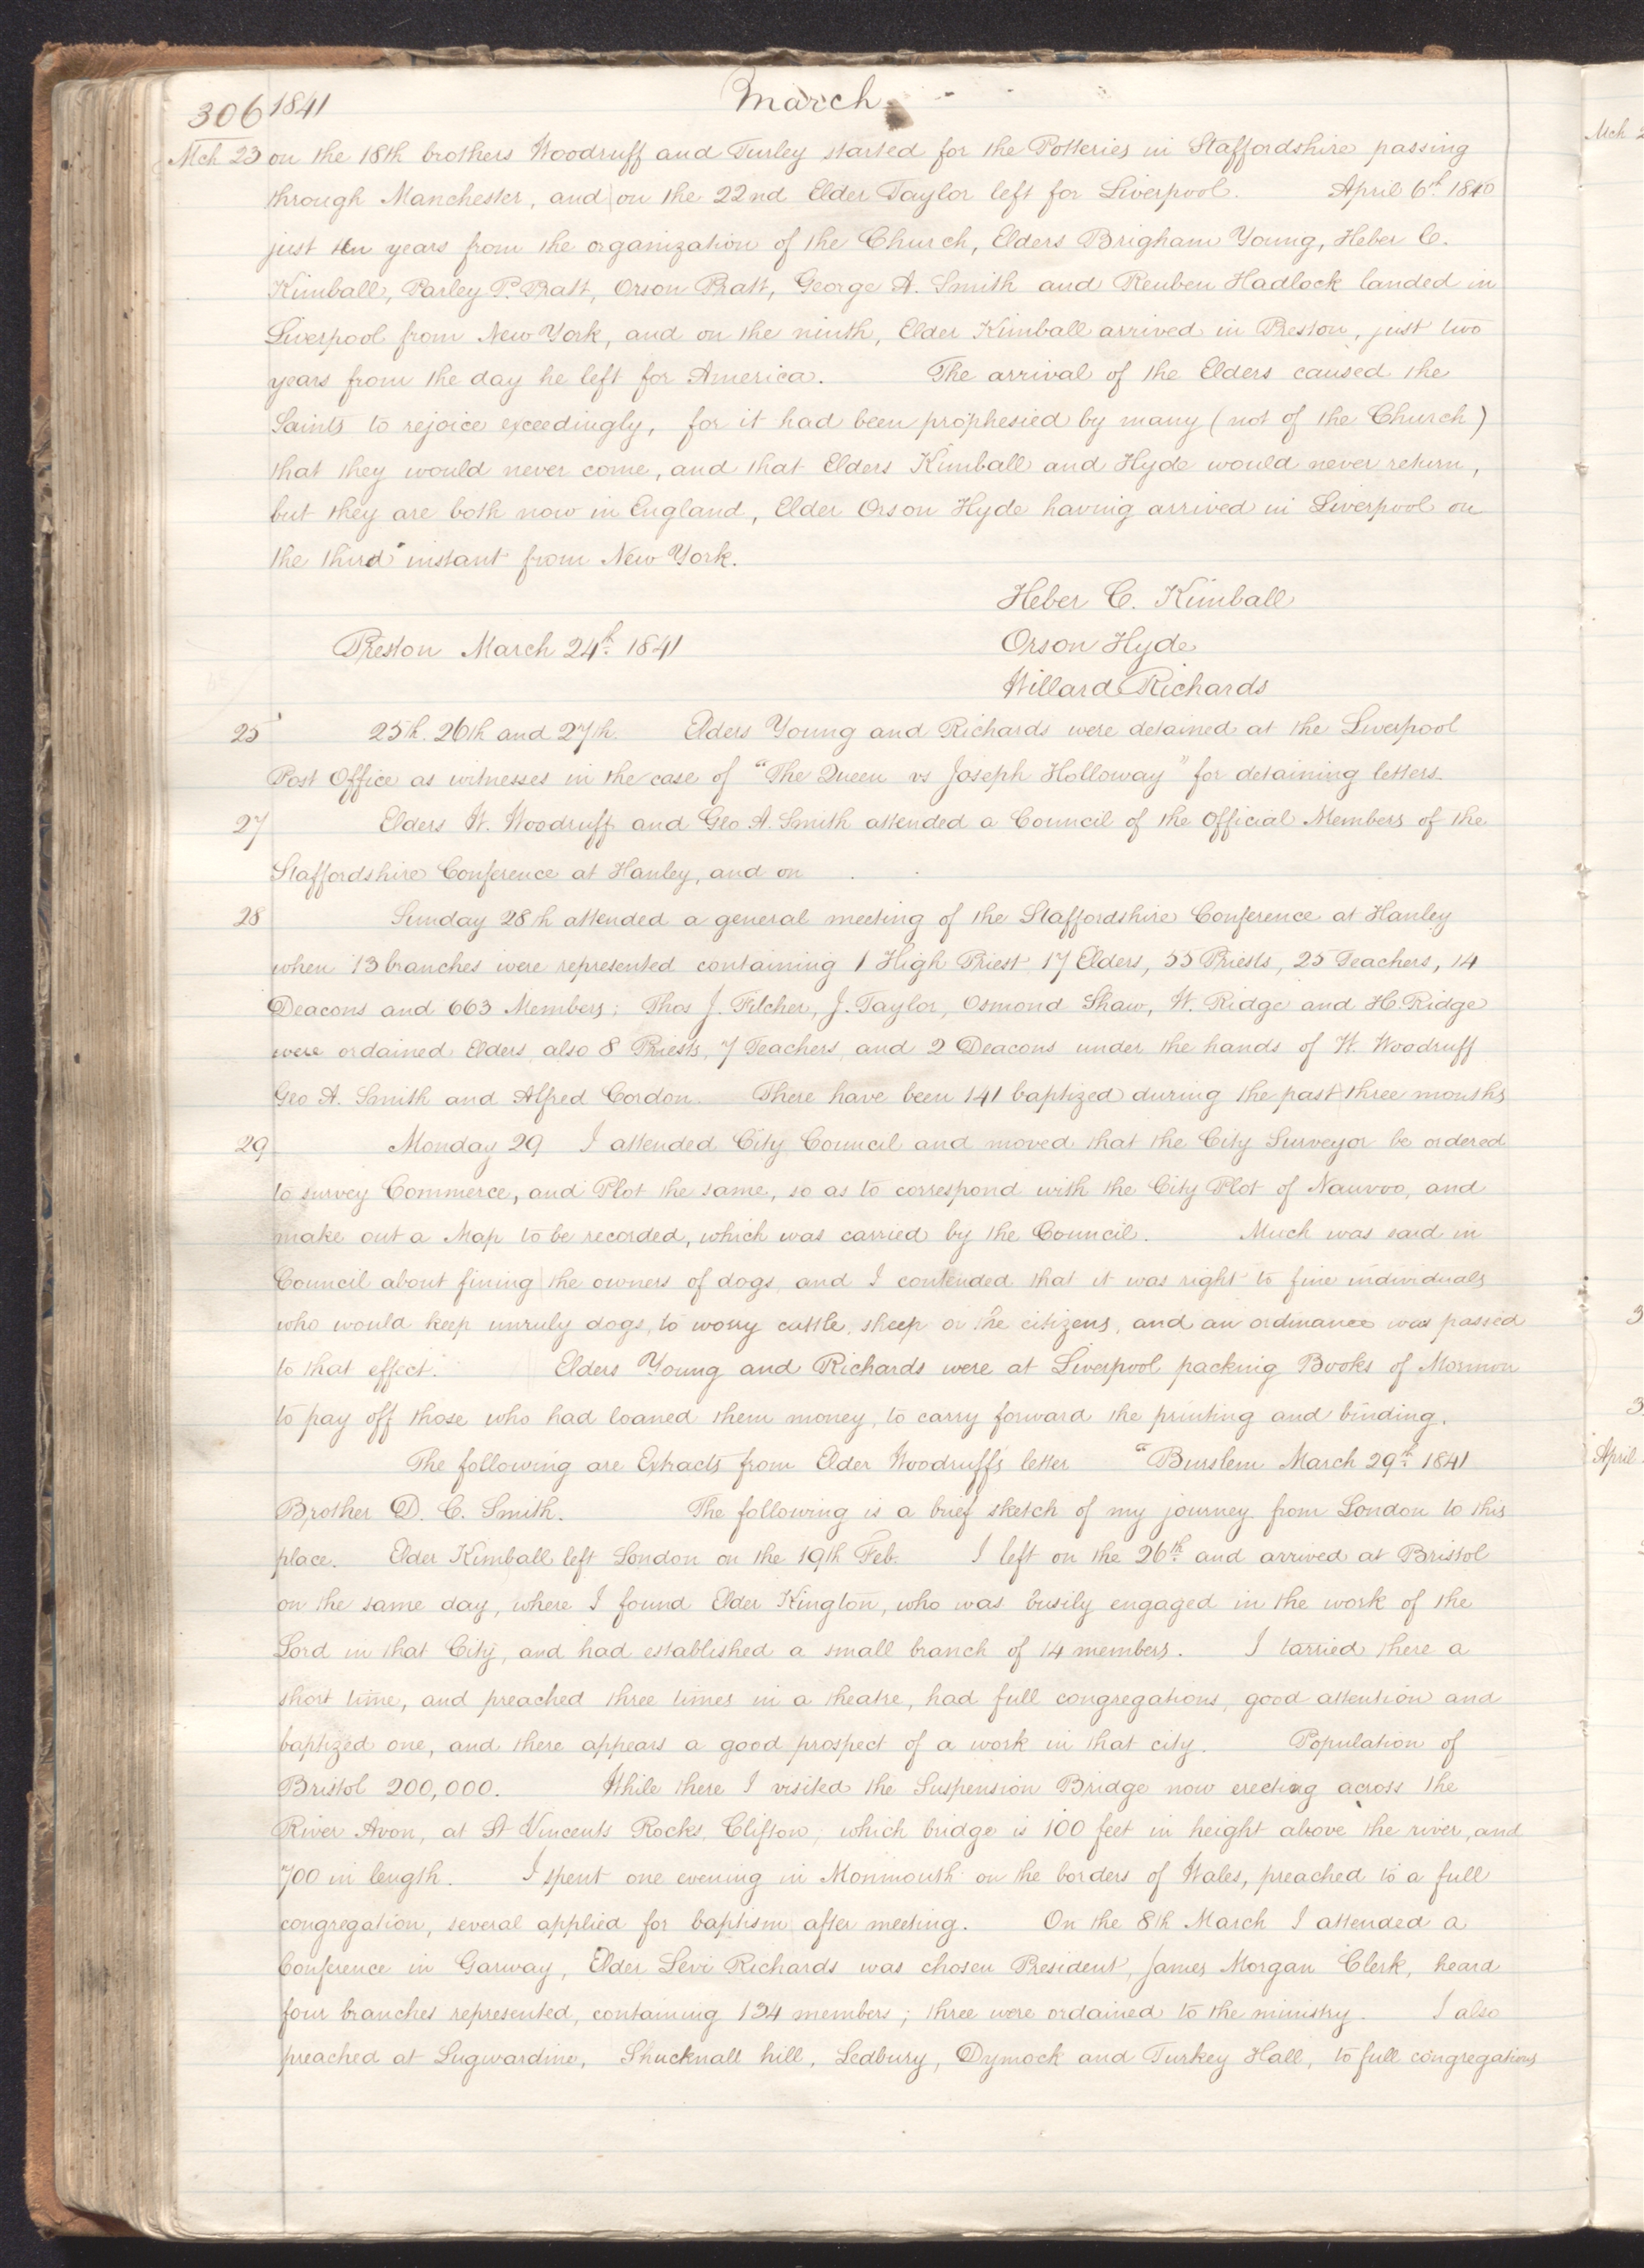 306 1841 March
Mch 23 on the 18th brothers Woodruff and Turley started for the Potteries in Staffordshire passing
through Manchester, and on the 22nd Elder Taylor left for Liverpool. April 6th 1840
just ten years from the organization of the Church, Elders Brigham Young, Heber C.
Kimball, Parley P. Pratt, Orson Pratt, George A. Smith and Reuben Hadlock landed in
Liverpool from New York, and on the ninth, Elder Kimball arrived in Preston, just two
years from the day he left for America. The arrival of the Elders caused the
Saints to rejoice exceedingly, for it had been prophesied by many (not of the Church)
that they would never come, and that Elders Kimball and Hyde would never return,
but they are both now in England, Elder Orson Hyde having arrived in Liverpool on
the third instant from New York.
Heber C. Kimball
Preston March 24th 1841 Orson Hyde
Willard Richards
25 25th. 26th and 27th. Elders Young and Richards were detained at the Liverpool
Post Office as witnesses in the case of "The Queen vs Joseph Holloway" for detaining letters.
27 Elders W. Woodruff and Geo A. Smith attended a Council of the Official Members of the
Staffordshire Conference at Hanley, and on
28 Sunday 28th attended a general meeting of the Staffordshire Conference at Hanley
when 13 branches were represented containing 1 High Priest 17 Elders, 55 Priests, 25 Teachers, 14
Deacons and 663 Members; Thos J. Filcher, J. Taylor, Osmond Shaw, W. Ridge and H. Ridge
were ordained Elders, also 8 Priests, 7 Teachers, and 2 Deacons under the hands of W. Woodruff
Geo A. Smith and Alfred Cordon. There have been 141 baptized during the past three months
29 Monday 29 I attended City Council and moved that the City Surveyor be ordered
to survey Commerce, and Plot the same, so as to correspond with the City Plot of Nauvoo, and
make out a Map to be recorded, which was carried by the Council. Much was said in
Council about fining the owners of dogs, and I contended that it was right to fine individuals
who would keep unruly dogs, to worry cattle, sheep or the citizens, and an ordinance was passed
to that effect. Elders Young and Richards were at Liverpool packing Books of Mormon
to pay off those who had loaned them money, to carry forward the printing and binding.
The following are Extracts from Elder Woodruff's letter "Burslem March 29th 1841
Brother D. C. Smith. The following is a brief sketch of my journey from London to this
place. Elder Kimball left London on the 19th Feb. I left on the 26th and arrived at Bristol
on the same day, where I found Elder Kington, who was busily engaged in the work of the
Lord in that City, and had established a small branch of 14 members. I tarried there a
short time, and preached three times in a theatre, had full congregations, good attention and
baptized one, and there appears a good prospect of a work in that city. Population of
Bristol 200,000. While there I visited the Suspension Bridge now erecting across the
River Avon, at St Vincents Rocks, Clifton, which bridge is 100 feet in height above the river, and
700 in length. I spent one evening in Monmouth on the borders of Wales, preached to a full
congregation, several applied for baptism after meeting. On the 8th March I attended a
Conference in Garway, Elder Levi Richards was chosen President, James Morgan Clerk, heard
four branches represented, containing 134 members; three were ordained to the ministry. I also
preached at Lugwardine, Shucknall hill, Ledbury, Dymock and Turkey Hall, to full congregations
Mch 2
3
3
April